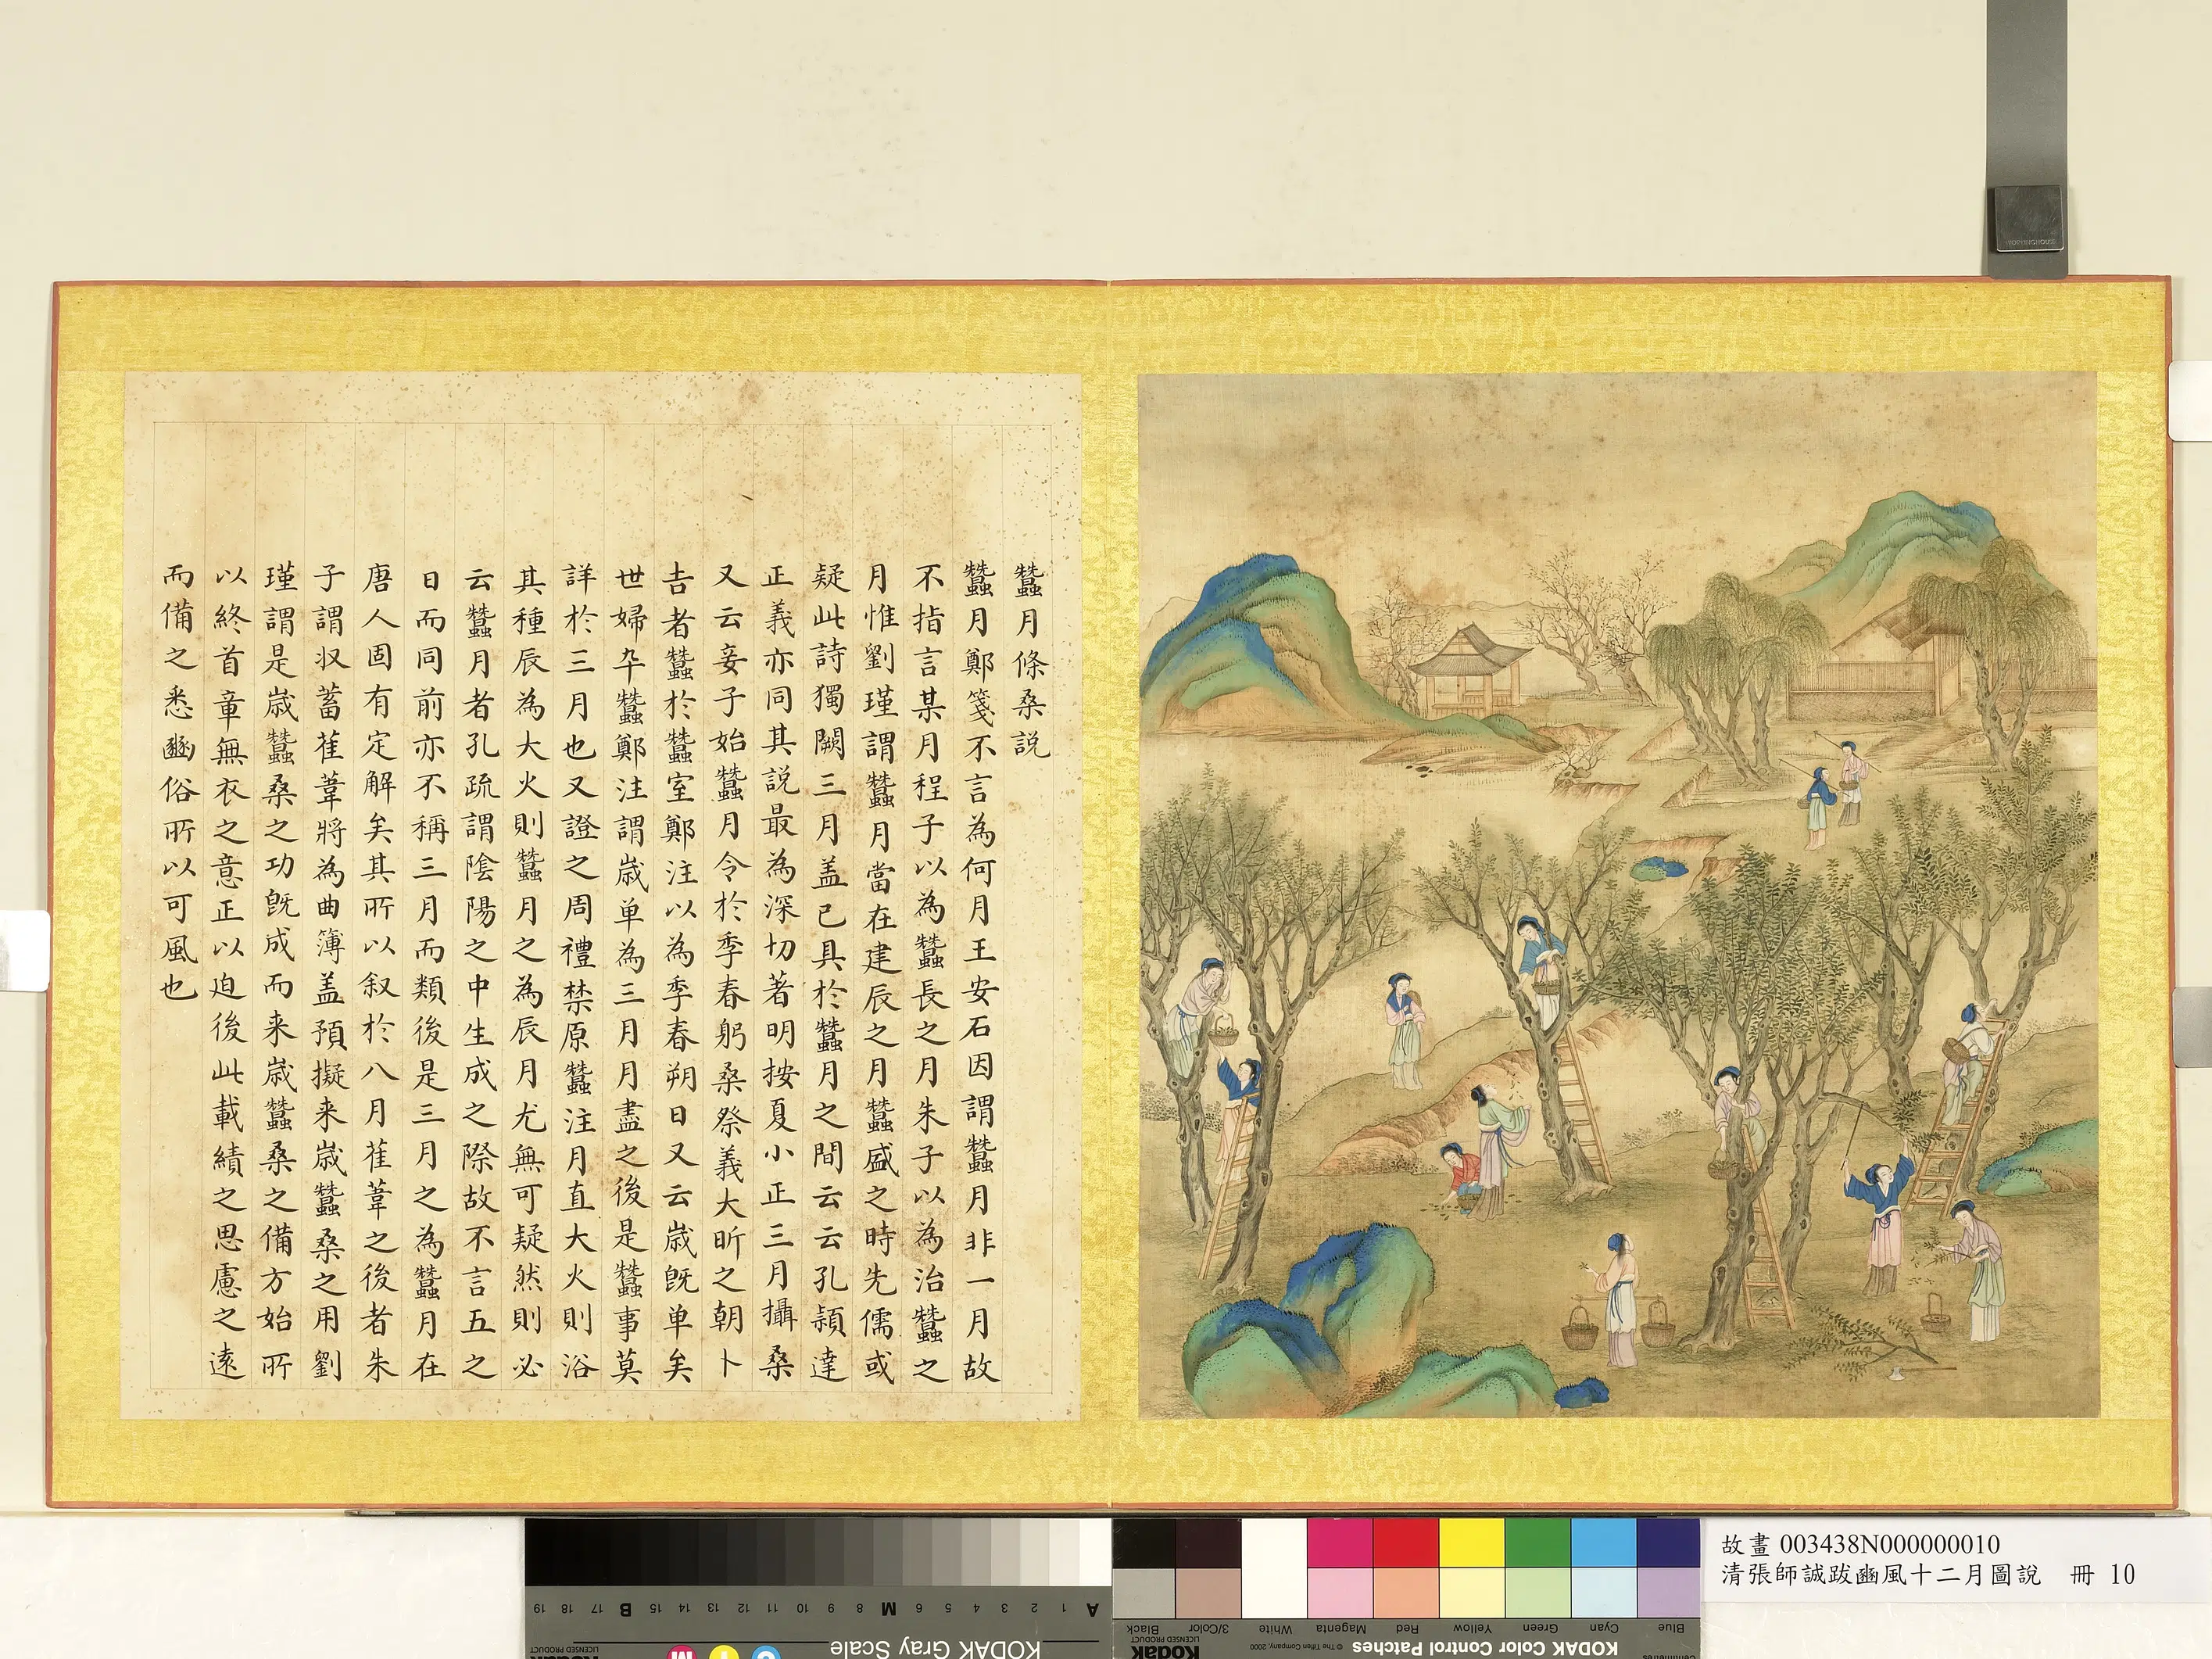 蠶月條桑説
蠶月鄭箋不言為何月王安石因謂蠶月非一月故
不指言某月程子以為蠶長之月朱子以為治蠶之
月惟劉瑾謂蠶月當在建辰之月蠶盛之時先儒或
疑此詩獨闕三月盖已具於蠶月之間云云孔頴達
正義亦同其説最為深切著明按夏小正三月攝桑
又云妾子始蠶月令於季春躬桑祭義大昕之朝卜
吉者蠶於蠶室鄭注以為季春朔日又云嵗既单矣
世婦卒蠶鄭注謂嵗单為三月月盡之後是蠶事莫
詳於三月也又證之周禮禁原蠶注月直大火則浴
其種辰為大火則蠶月之為辰月尤無可疑然則必
云蠶月者孔疏謂隂陽之中生成之際故不言五之
日而同前亦不稱三月而類後是三月之為蠶月在
唐人固有定解矣其所以叙於八月萑葦之後者朱
子謂収蓄萑葦將為曲簿盖預擬来嵗蠶桑之用劉
瑾謂是嵗蠶桑之功既成而来嵗蠶桑之備方始所
以終首章無衣之意正以迫後此載績之思慮之遠
而備之悉豳俗所以可風也
故畫 003438N000000010
清張師誠跋豳風十二月圖說 冊 10
KODAK Gray Scale
A 1 2 3 4 5 6 M 8 9 10 11 12 13 14 15 B 17 18 19
C Y M
Kodak
LICENSED PRODUCT
KODAK Color Control Patches
© The Tiffen Company, 2000
Kodak
LICENSED PRODUCT
Blue Cyan Green Yellow Red Magenta White 3/Color Black
Centimetres